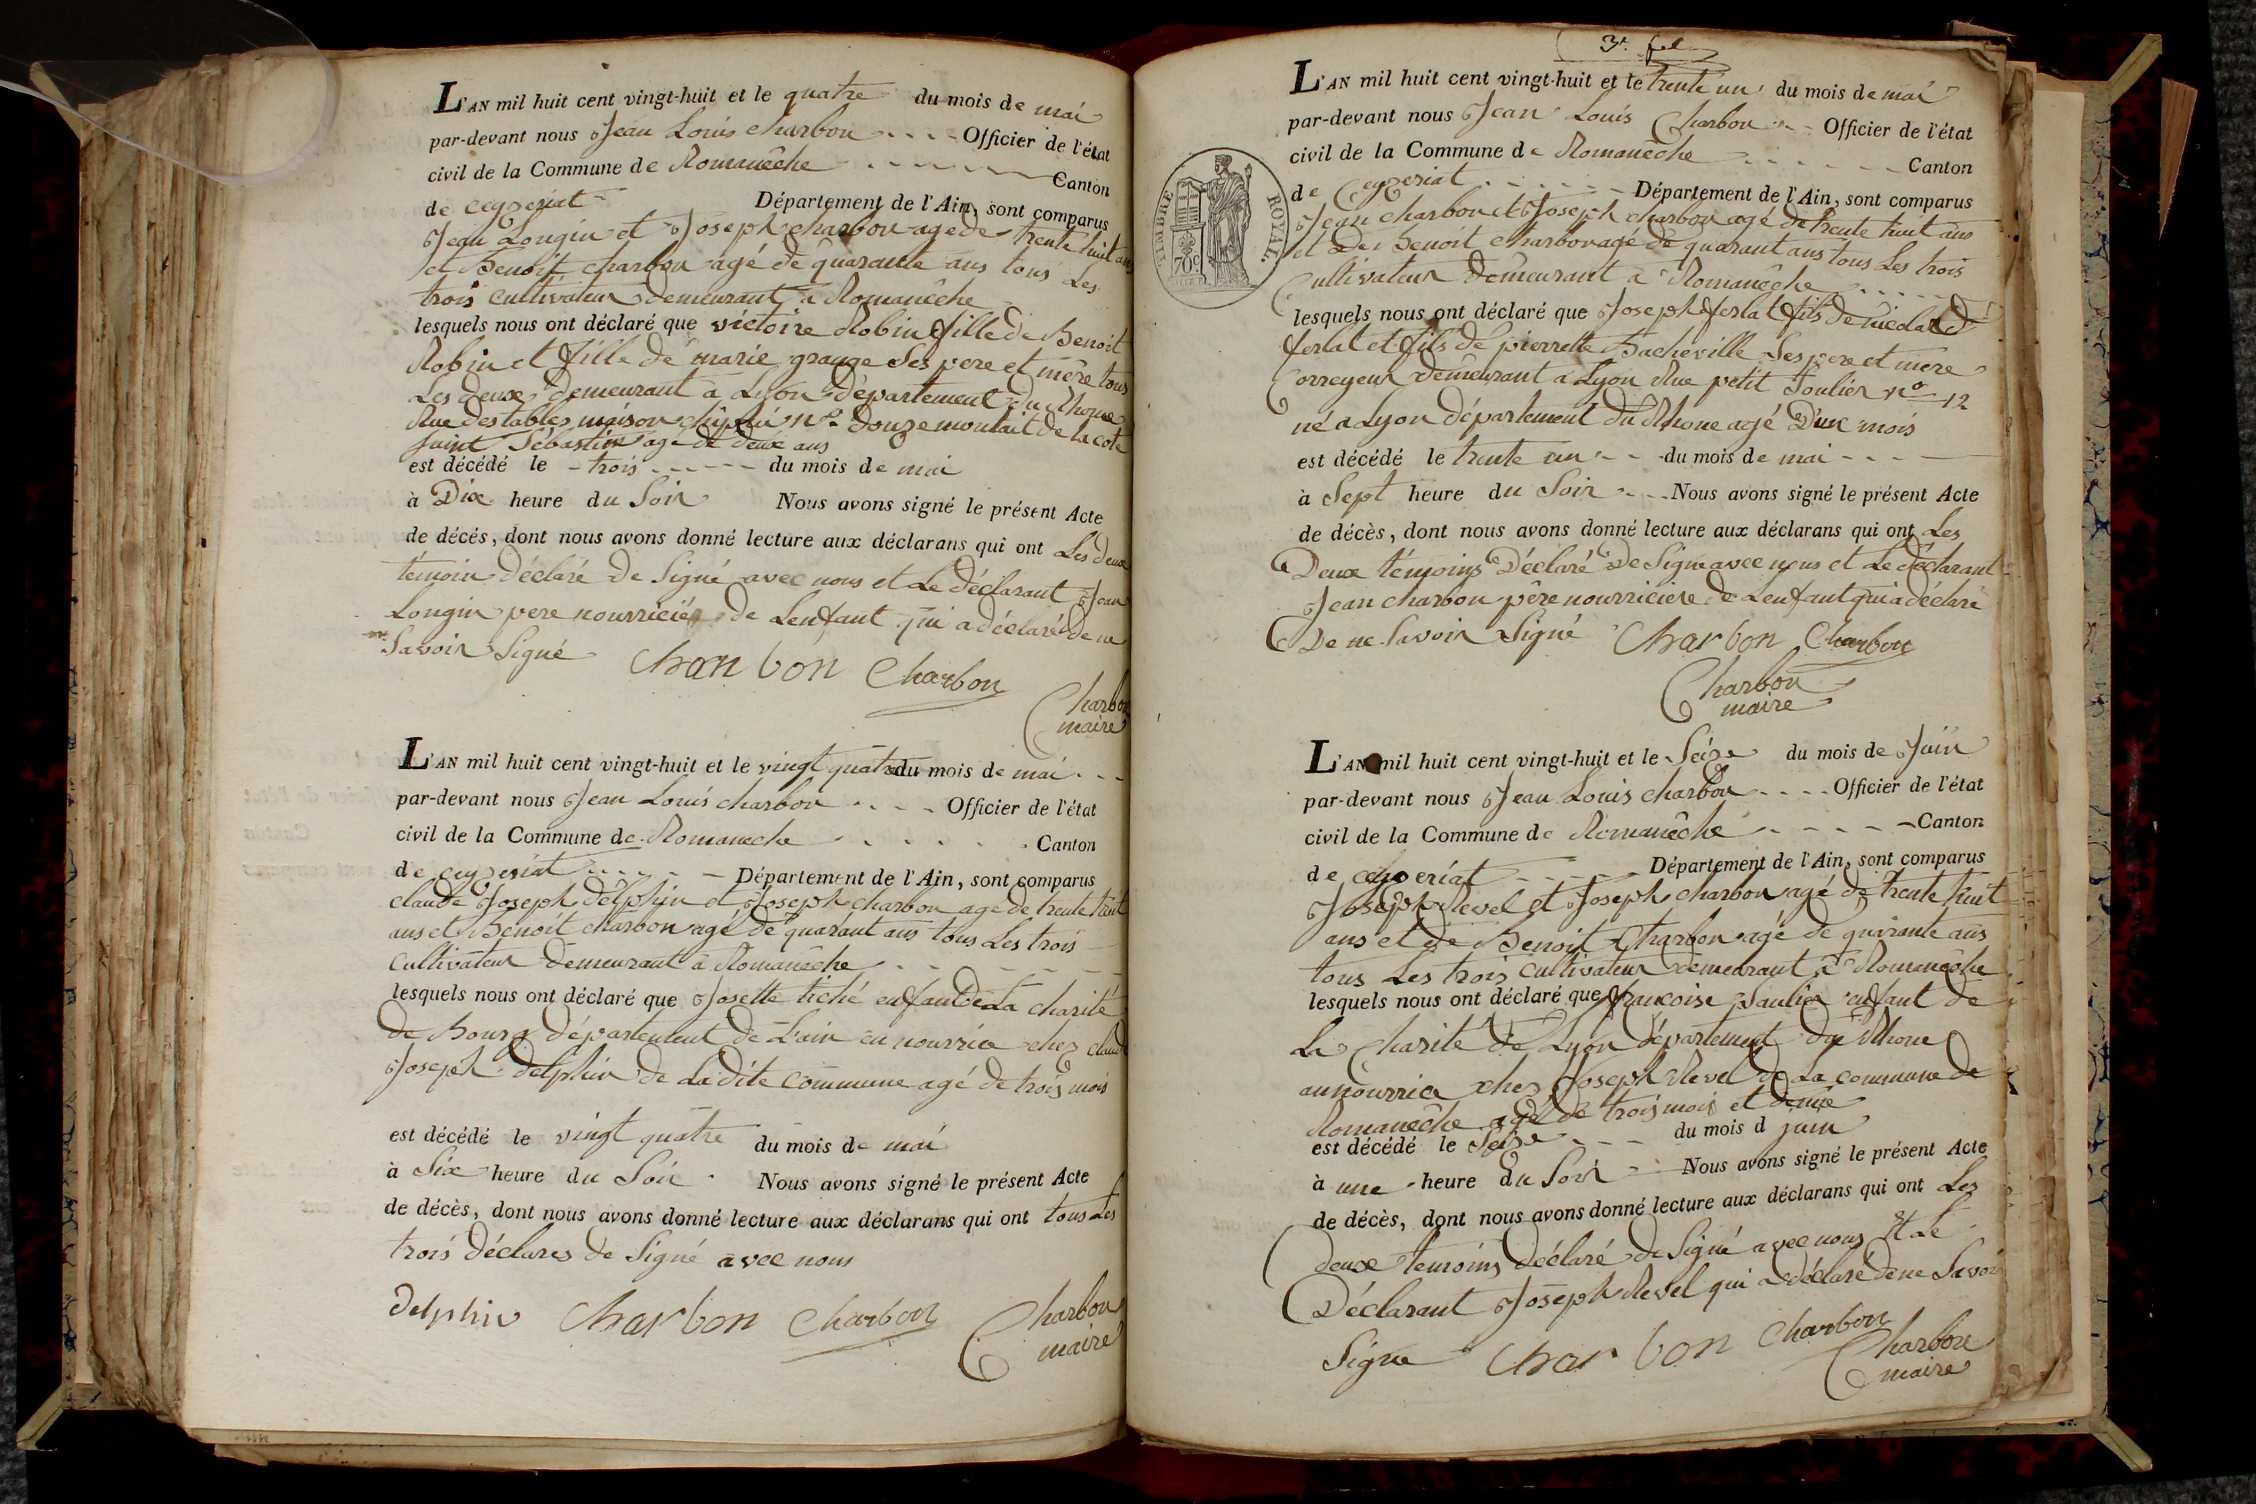 L'AN mil huit cent vingt-huit et le quatre du mois de mai
par-devant nous Jean Louis charbon Officier de l'état
civil de la Commune de Romanêche Canton
de ceyzeriat Département de l'Ain, sont comparus
Jean Longin et Joseph charbon age de trente huit ans
et Benoit charbon agé de quarante ans tous Les
trois cultivateur demeurant a Romanêche
lesquels nous ont déclaré que victoire Robin fille de Benoit
Robin et fille de marie grange Ses pere et mère tous
Les deux demeurant a Lyon département du Rhone
Rue des tables maison n° douze montait de la cote
saint Sébastien age de deux ans
est décédé le trois du mois de mai
à Dix heure du Soir Nous avons signé le présent Acte
de décés, dont nous avons donné lecture aux déclarans qui ont Les deux
témoin déclaré de Signé avec nous et Le déclarant Jean
Longin pere nourricier de Lenfant qui a déclaré de ne
Savoir Signé charbon Charbon
Charbon
maire
L'AN mil huit cent vingt-huit et le vingt quatre du mois de mai
par-devant nous Jean Louis charbon Officier de l'état
civil de la Commune de Romaneche Canton
de ceyzeriat Département de l'Ain, sont comparus
claude Joseph delphin et Joseph charbon age de trente huit
ans et Benoit charbon agé de quarant ans tous Les trois
cultivateur demeurant a Romanêche
lesquels nous ont déclaré que Josette tiché enfant de La charité
de Bourg département de L'ain en nourrice chez claude
Joseph delphin de La dite commune agé de trois mois
est décédé le vingt quatre du mois de mai
à Six heure du Soir Nous avons signé le présent Acte
de décès, dont nous avons donné lecture aux déclarans qui ont tous Les
trois déclares de Signé avec nous
delphin Charbon Charbon Charbon
maire
3e fel
L'AN mil huit cent vingt-huit et le trente un du mois de mai
par-devant nous Jean Louis Charbon Officier de l'état
civil de la Commune de Romanêche Canton
de Ceyzeriat Département de l'Ain, sont comparus
TIMBRE ROYAL.
70c
Jean charbon et Joseph charbon agé de trente huit ans
et de Benoit charbon agé de quarant ans tous Les trois
Cultivateur demeurant a Romanêche
lesquels nous ont déclaré que Joseph ferlat fils de nicolas
ferlat et fils de pierrette Bacheville Ses pere et mère
Corroyeur demeurant a Lyon Rue petit Soulier n° 12
né a Lyon département du Rhone agé D'un mois
est décédé le trente un du mois de mai
à Sept heure du Soir Nous avons signé le présent Acte
de décès, dont nous avons donné lecture aux déclarans qui ont Les
Deux témoins Déclaré De Signe avec nous et Le déclarant
Jean charbon père nourriciere de Lenfant qui a déclaré
De ne Savoir Signé Charbon Charbon
Charbon
maire
L'AN mil huit cent vingt-huit et le Seize du mois de Juin
par-devant nous Jean Louis charbon Officier de l'état
civil de la Commune de Romanêche Canton
de ceyzeriat Département de l'Ain, sont comparus
Joseph Revel et Joseph charbon agé de trente huit
ans et de Benoit Charbon agé de quarante ans
tous Les trois cultivateur demeurant a Romaneche
lesquels nous ont déclaré que françoise Saulier enfant de
La Charité de Lyon département du Rhone
annourrice chez Joseph Revel de La commune de
Romanêche agé de trois mois et demie
est décédé le Seize du mois d juin
à une heure du Soir Nous avons signé le présent Acte
de décès, dont nous avons donné lecture aux déclarans qui ont Les
deux temoins déclaré de Signé avec nous et Le
Déclarant Joseph Revel qui a déclaré de ne Savoir
Signe charbon charbon Charbon
maire